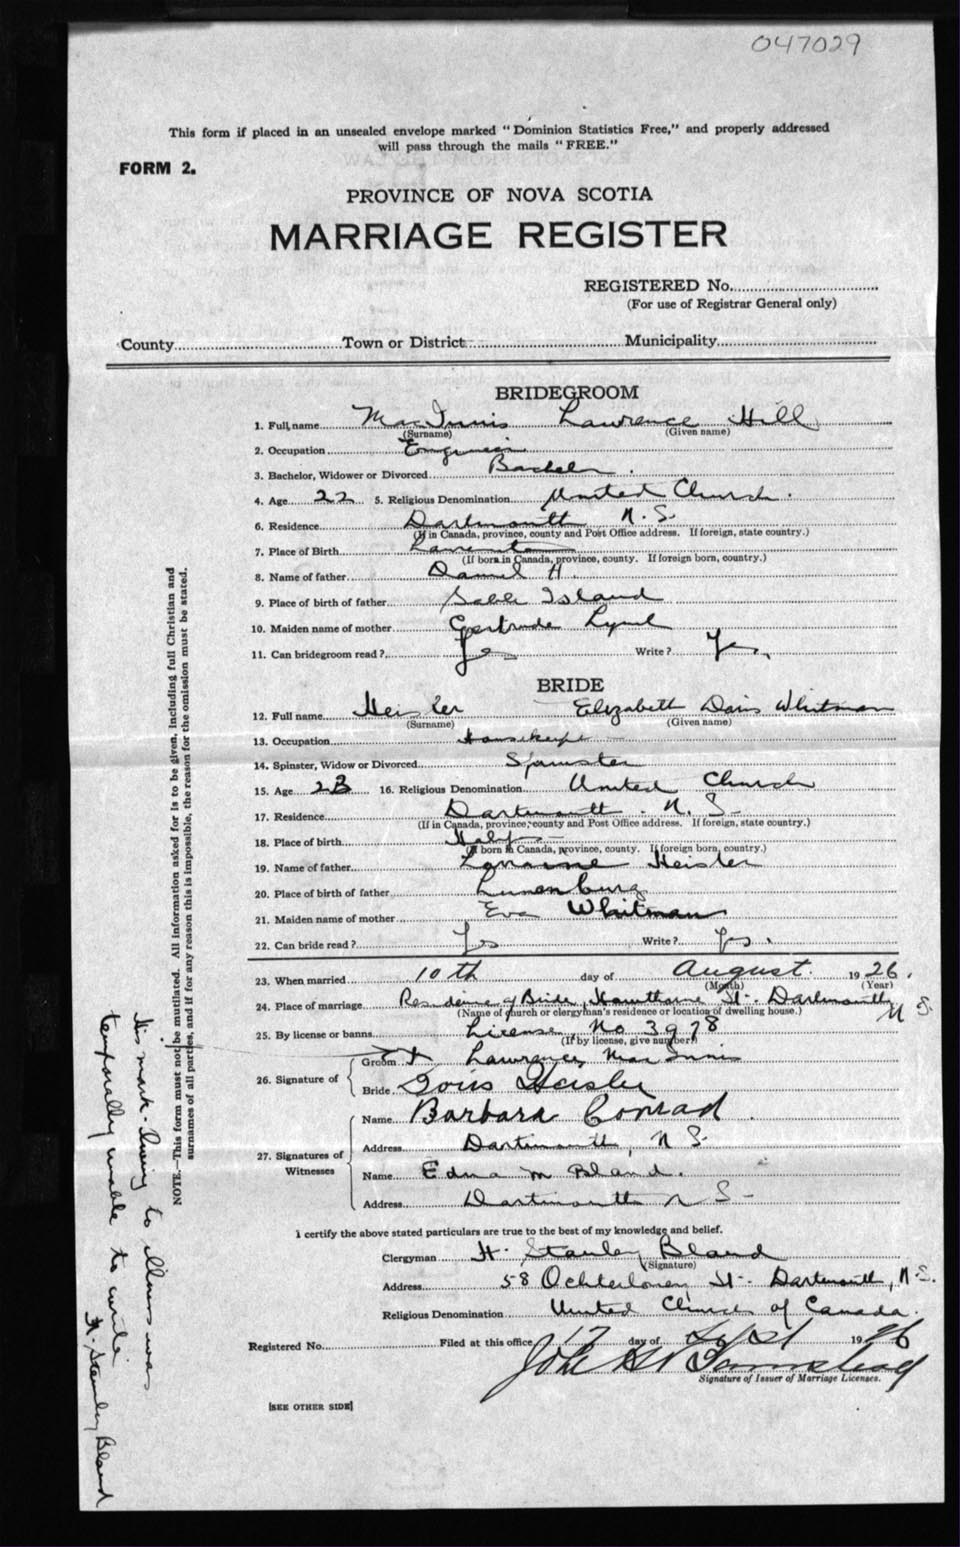 047029
This form if placed in an unsealed envelope marked "Dominion Statistics Free," and properly addressed
will pass through the mails "FREE."
FORM 2.
PROVINCE OF NOVA SCOTIA
MARRIAGE REGISTER
REGISTERED No.
(For use of Registrar General only)
County Town or District Municipality
BRIDEGROOM
1. Full name MacInnis Lawrence Hill
(Surname) (Given name)
2. Occupation Engineer
3. Bachelor, Widower or Divorced Bachelor.
4. Age 22 5. Religious Denomination United Church.
6. Residence Dartmouth N.S.
(If in Canada, province, county and Post Office address. If foreign, state country.)
7. Place of Birth
(If born in Canada, province, county. If foreign born, country.)
8. Name of father Daniel H.
9. Place of birth of father Sable Island
10. Maiden name of mother Gertrude
11. Can bridegroom read? Yes Write? Yes.
BRIDE
12. Full name Heisler Elizabeth Doris Whitman
(Surname) (Given name)
13. Occupation
14. Spinster, Widow or Divorced Spinster
15. Age 23 16. Religious Denomination United Church
17. Residence Dartmouth N.S.
(If in Canada, province, county and Post Office address. If foreign, state country.)
18. Place of birth Halifax
(If born in Canada, province, county. If foreign born, country.)
19. Name of father Heisler
20. Place of birth of father Lunenburg
21. Maiden name of mother Eva Whitman
22. Can bride read? Yes Write? Yes.
23. When married 10th day of August. 1926.
(Month) (Year)
24. Place of marriage Residence of Bride, Hawthorne St. Dartmouth N S.
(Name of church or clergyman's residence or location of dwelling house.)
25. By license or banns License, No 3978
(If by license, give number)
26. Signature of Groom X Lawrence MacInnis
Bride Doris Heisler
27. Signatures of Witnesses Name Barbara Conrad
Address Dartmouth, N S.
Name Edna M Bland.
Address Dartmouth N S.
I certify the above stated particulars are true to the best of my knowledge and belief.
Clergyman H. Stanley Bland
(Signature)
Address 58 Ochterloney St. Dartmouth, N.S.
Religious Denomination United Church of Canada.
Registered No. Filed at this office 17 day of Sept 1926
Signature of Issuer of Marriage Licenses.
[SEE OTHER SIDE]
NOTE.—This form must not be mutilated. All information asked for is to be given, including full Christian and
surnames of all parties, and if for any reason this is impossible, the reason for the omission must be stated.
His mark. Owing to illness was
temporally unable to write
H. Stanley Bland